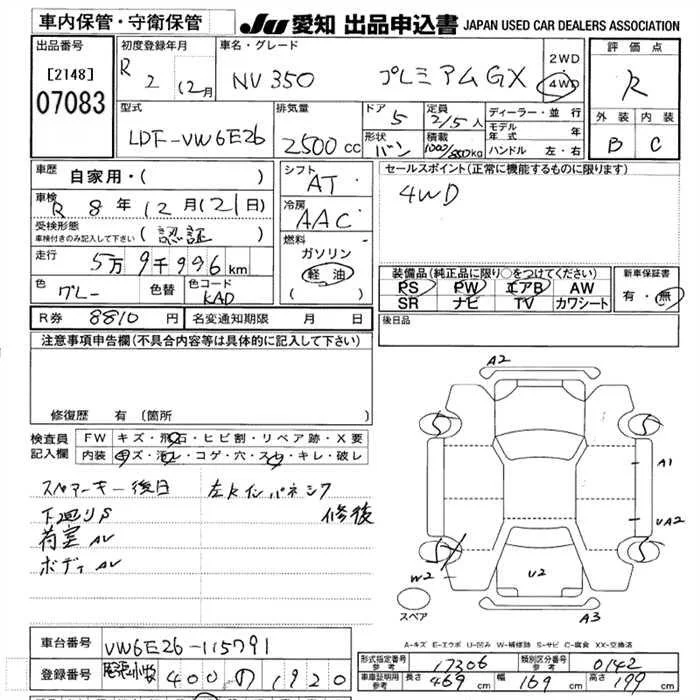 車内保管・守衛保管
JU 愛知 出品申込書 JAPAN USED CAR DEALERS ASSOCIATION
出品番号
[2148]
07083
初度登録年月
R 2 12月
車名・グレード
NV350 プレミアムGX
2WD
4WD
評価点
R
外装 内装
B C
型式
LDF-VW6E26
排気量
2500 cc
ドア
5
形状
バン
定員
2/5人
積載
1000/850kg
ディーラー・並行
モデル年式 年
ハンドル 左・右
車歴
自家用・( )
車検
R 8 年 12 月 (21日)
受検形態
車検付きのみ記入して下さい (認証)
走行
5万 9千 996 km
色
グレー
色替
色コード
KAD
シフト
AT
冷房
AAC
燃料
ガソリン
軽油
( )
セールスポイント(正常に機能するものに限ります)
4WD
装備品(純正品に限り○をつけてください)
PS PW エアB AW
SR ナビ TV カワシート
新車保証書
有・無
R券 8810 円 名変通知期限 月 日
後日品
注意事項申告欄(不具合内容等は具体的に記入して下さい)
修復歴 有 (箇所 )
検査員記入欄
FW キズ・飛石・ヒビ割・リペア跡・X要
内装 キズ・汚レ・コゲ・穴・スレ・キレ・破レ
スペアーキー後日 左Rインパネシワ
下廻りS 修後
荷室AU
ボディAU
A2
S
S
A1
UA2
S
S
W2
U2
A3
スペア
A-キズ E-エクボ U-凹み W-補修跡 S-サビ C-腐食 XX-交換済
車台番号 VW6E26-115791
登録番号 尾張小牧 400 の 1920
形式指定番号 参考 17306 類別区分番号 参考 0142
車庫証明用 参考 長さ 469 cm 幅 169 cm 高さ 199 cm